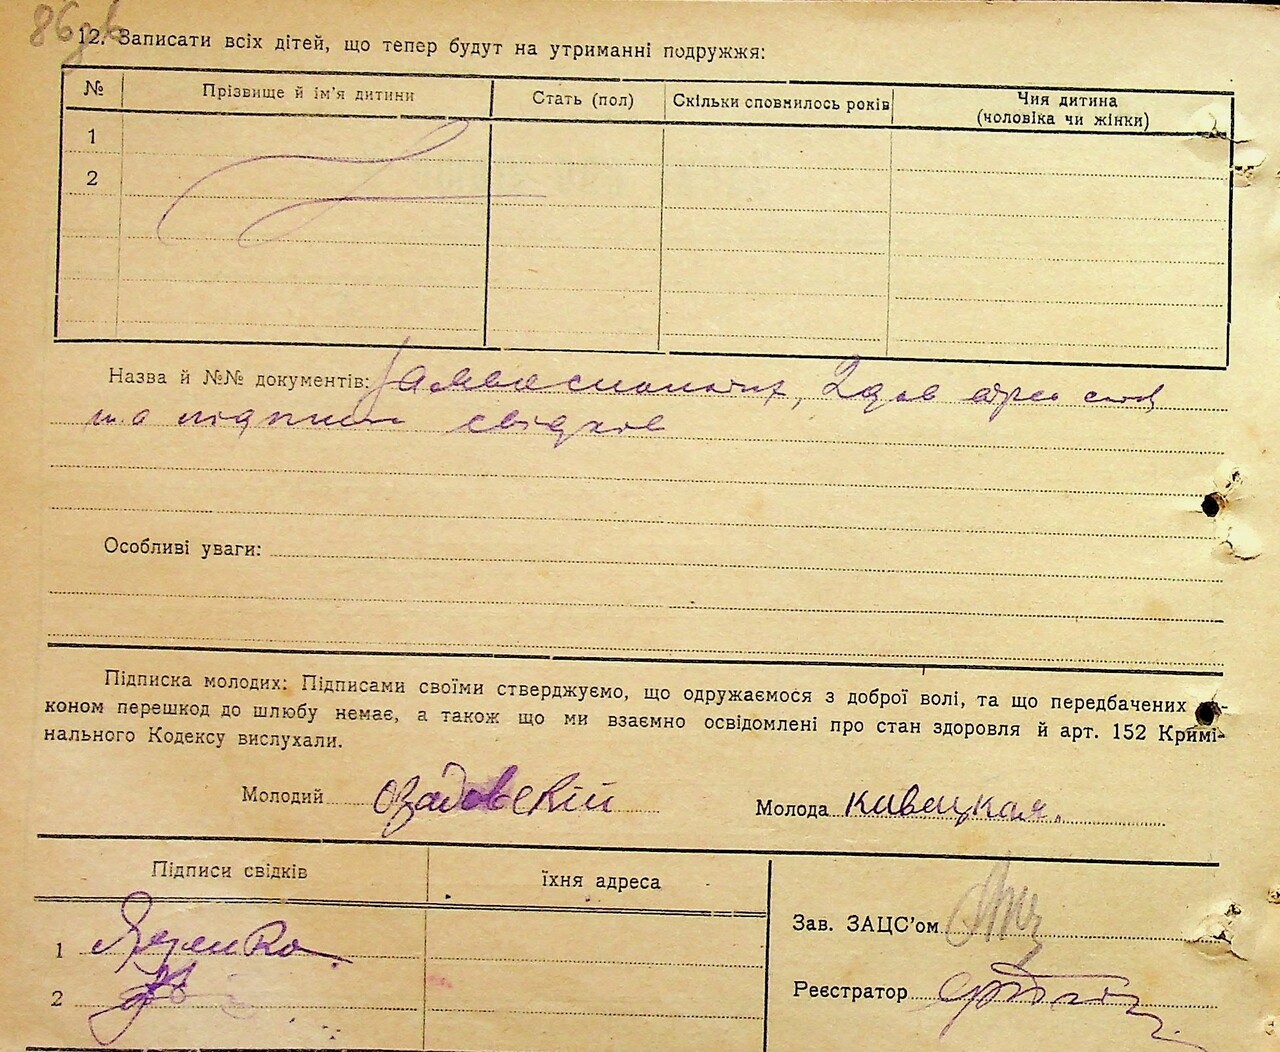 86зв
12. Записати всіх дітей, що тепер будут на утриманні подружжя:
№ Прізвище й ім'я дитини Стать (пол) Скільки сповнилось років Чия дитина
(чоловіка чи жінки)
1
2
Назва й №№ документів:
та підписи свідків
Особливі уваги:
Підписка молодих: Підписами своїми стверджуємо, що одружаємося з доброї волі, та що передбачених
коном перешкод до шлюбу немає, а також що ми взаємно освідомлені про стан здоровля й арт. 152 Кримі-
нального Кодексу вислухали.
Молодий Озадовскій Молода Кивецкая.
Підписи свідків їхня адреса
Зав. ЗАЦС'ом
1
Реєстратор
2